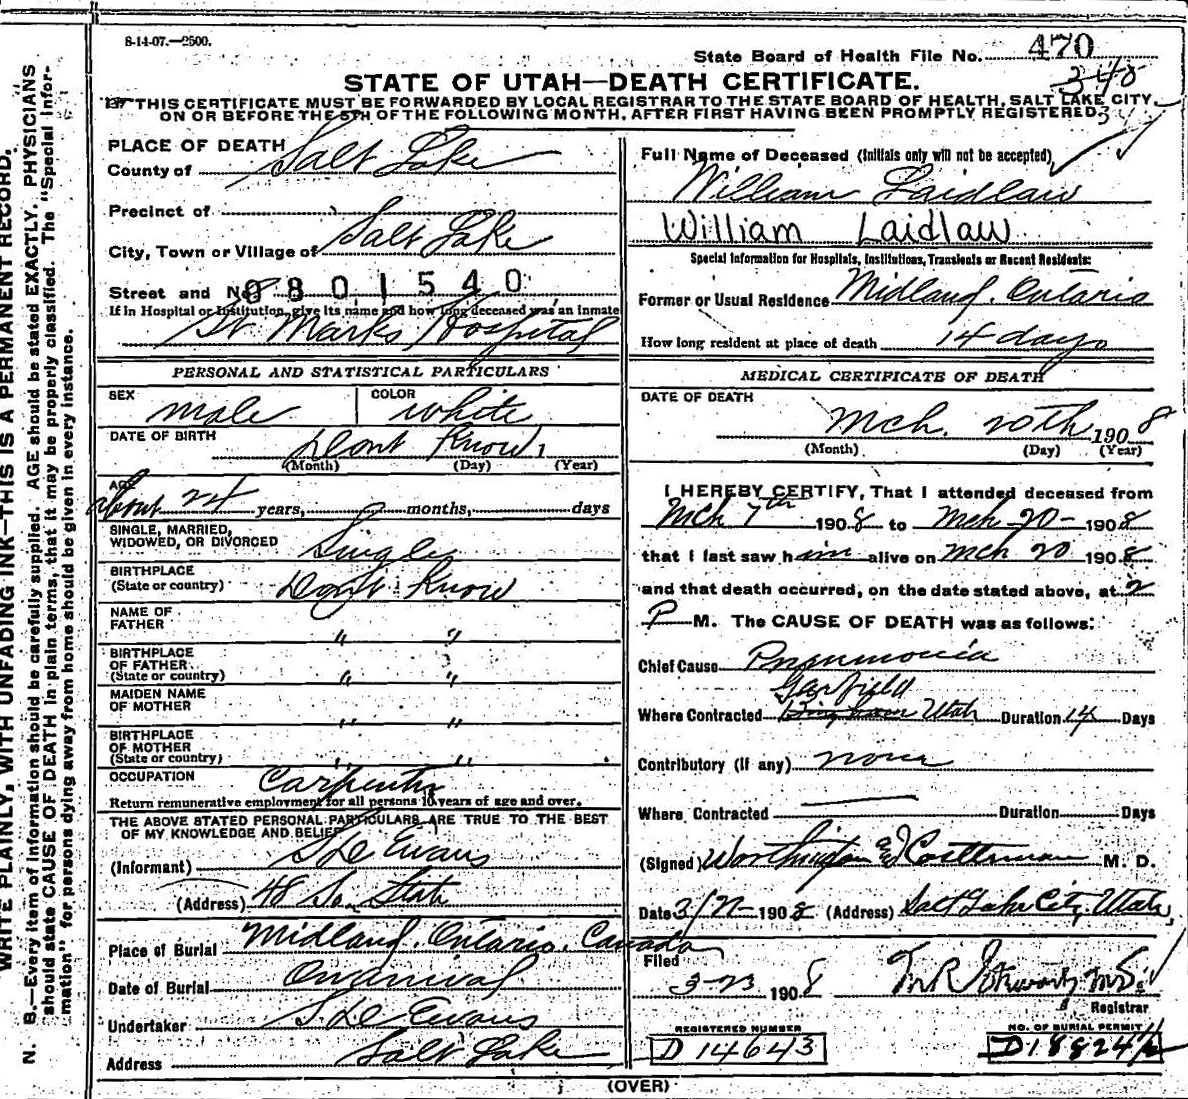 8-14-07.—2500.
State Board of Health File No. 470
348
STATE OF UTAH—DEATH CERTIFICATE.
THIS CERTIFICATE MUST BE FORWARDED BY LOCAL REGISTRAR TO THE STATE BOARD OF HEALTH, SALT LAKE CITY,
ON OR BEFORE THE 5TH OF THE FOLLOWING MONTH, AFTER FIRST HAVING BEEN PROMPTLY REGISTERED.
WRITE PLAINLY, WITH UNFADING INK—THIS IS A PERMANENT RECORD.
N. B.—Every item of information should be carefully supplied. AGE should be stated EXACTLY. PHYSICIANS
should state CAUSE OF DEATH in plain terms, that it may be properly classified. The "Special Infor-
mation" for persons dying away from home should be given in every instance.
PLACE OF DEATH
County of Salt Lake
Precinct of
City, Town or Village of Salt Lake
Street and No. 0801540
If in Hospital or Institution, give its name and how long deceased was an inmate
St Marks Hospital
PERSONAL AND STATISTICAL PARTICULARS
SEX male COLOR white
DATE OF BIRTH Dont Know 1
(Month) (Day) (Year)
AGE
about 24 years, months, days
SINGLE, MARRIED,
WIDOWED, OR DIVORCED Single
BIRTHPLACE
(State or country) Dont Know
NAME OF
FATHER " "
BIRTHPLACE
OF FATHER
(State or country) " "
MAIDEN NAME
OF MOTHER " "
BIRTHPLACE
OF MOTHER
(State or country) " "
OCCUPATION Carpenter
Return remunerative employment for all persons 10 years of age and over.
THE ABOVE STATED PERSONAL PARTICULARS ARE TRUE TO THE BEST
OF MY KNOWLEDGE AND BELIEF
(Informant) S D Evans
(Address) 48 So. State
Place of Burial Midland, Ontario, Canada
Date of Burial On arrival
Undertaker S D Evans
Address Salt Lake
Full Name of Deceased (Initials only will not be accepted)
William Laidlaw
William Laidlaw
Special Information for Hospitals, Institutions, Transients or Recent Residents:
Former or Usual Residence Midland, Ontario
How long resident at place of death 14 days
MEDICAL CERTIFICATE OF DEATH
DATE OF DEATH
Mch. 20th 1908
(Month) (Day) (Year)
I HEREBY CERTIFY, That I attended deceased from
Mch 7th 1908 to Mch 20 - 1908
that I last saw him alive on Mch 20 1908
and that death occurred, on the date stated above, at 2
P M. The CAUSE OF DEATH was as follows:
Chief Cause Pneumonia
Garfield
Where Contracted Bingham Utah Duration 14 Days
Contributory (if any) none
Where Contracted Duration Days
(Signed) Worthington & M. D.
Date 3/21-1908 (Address) Salt Lake City, Utah,
Filed
3-23 1908
Registrar
REGISTERED NUMBER
D 14643
NO. OF BURIAL PERMIT
D18824
(OVER)